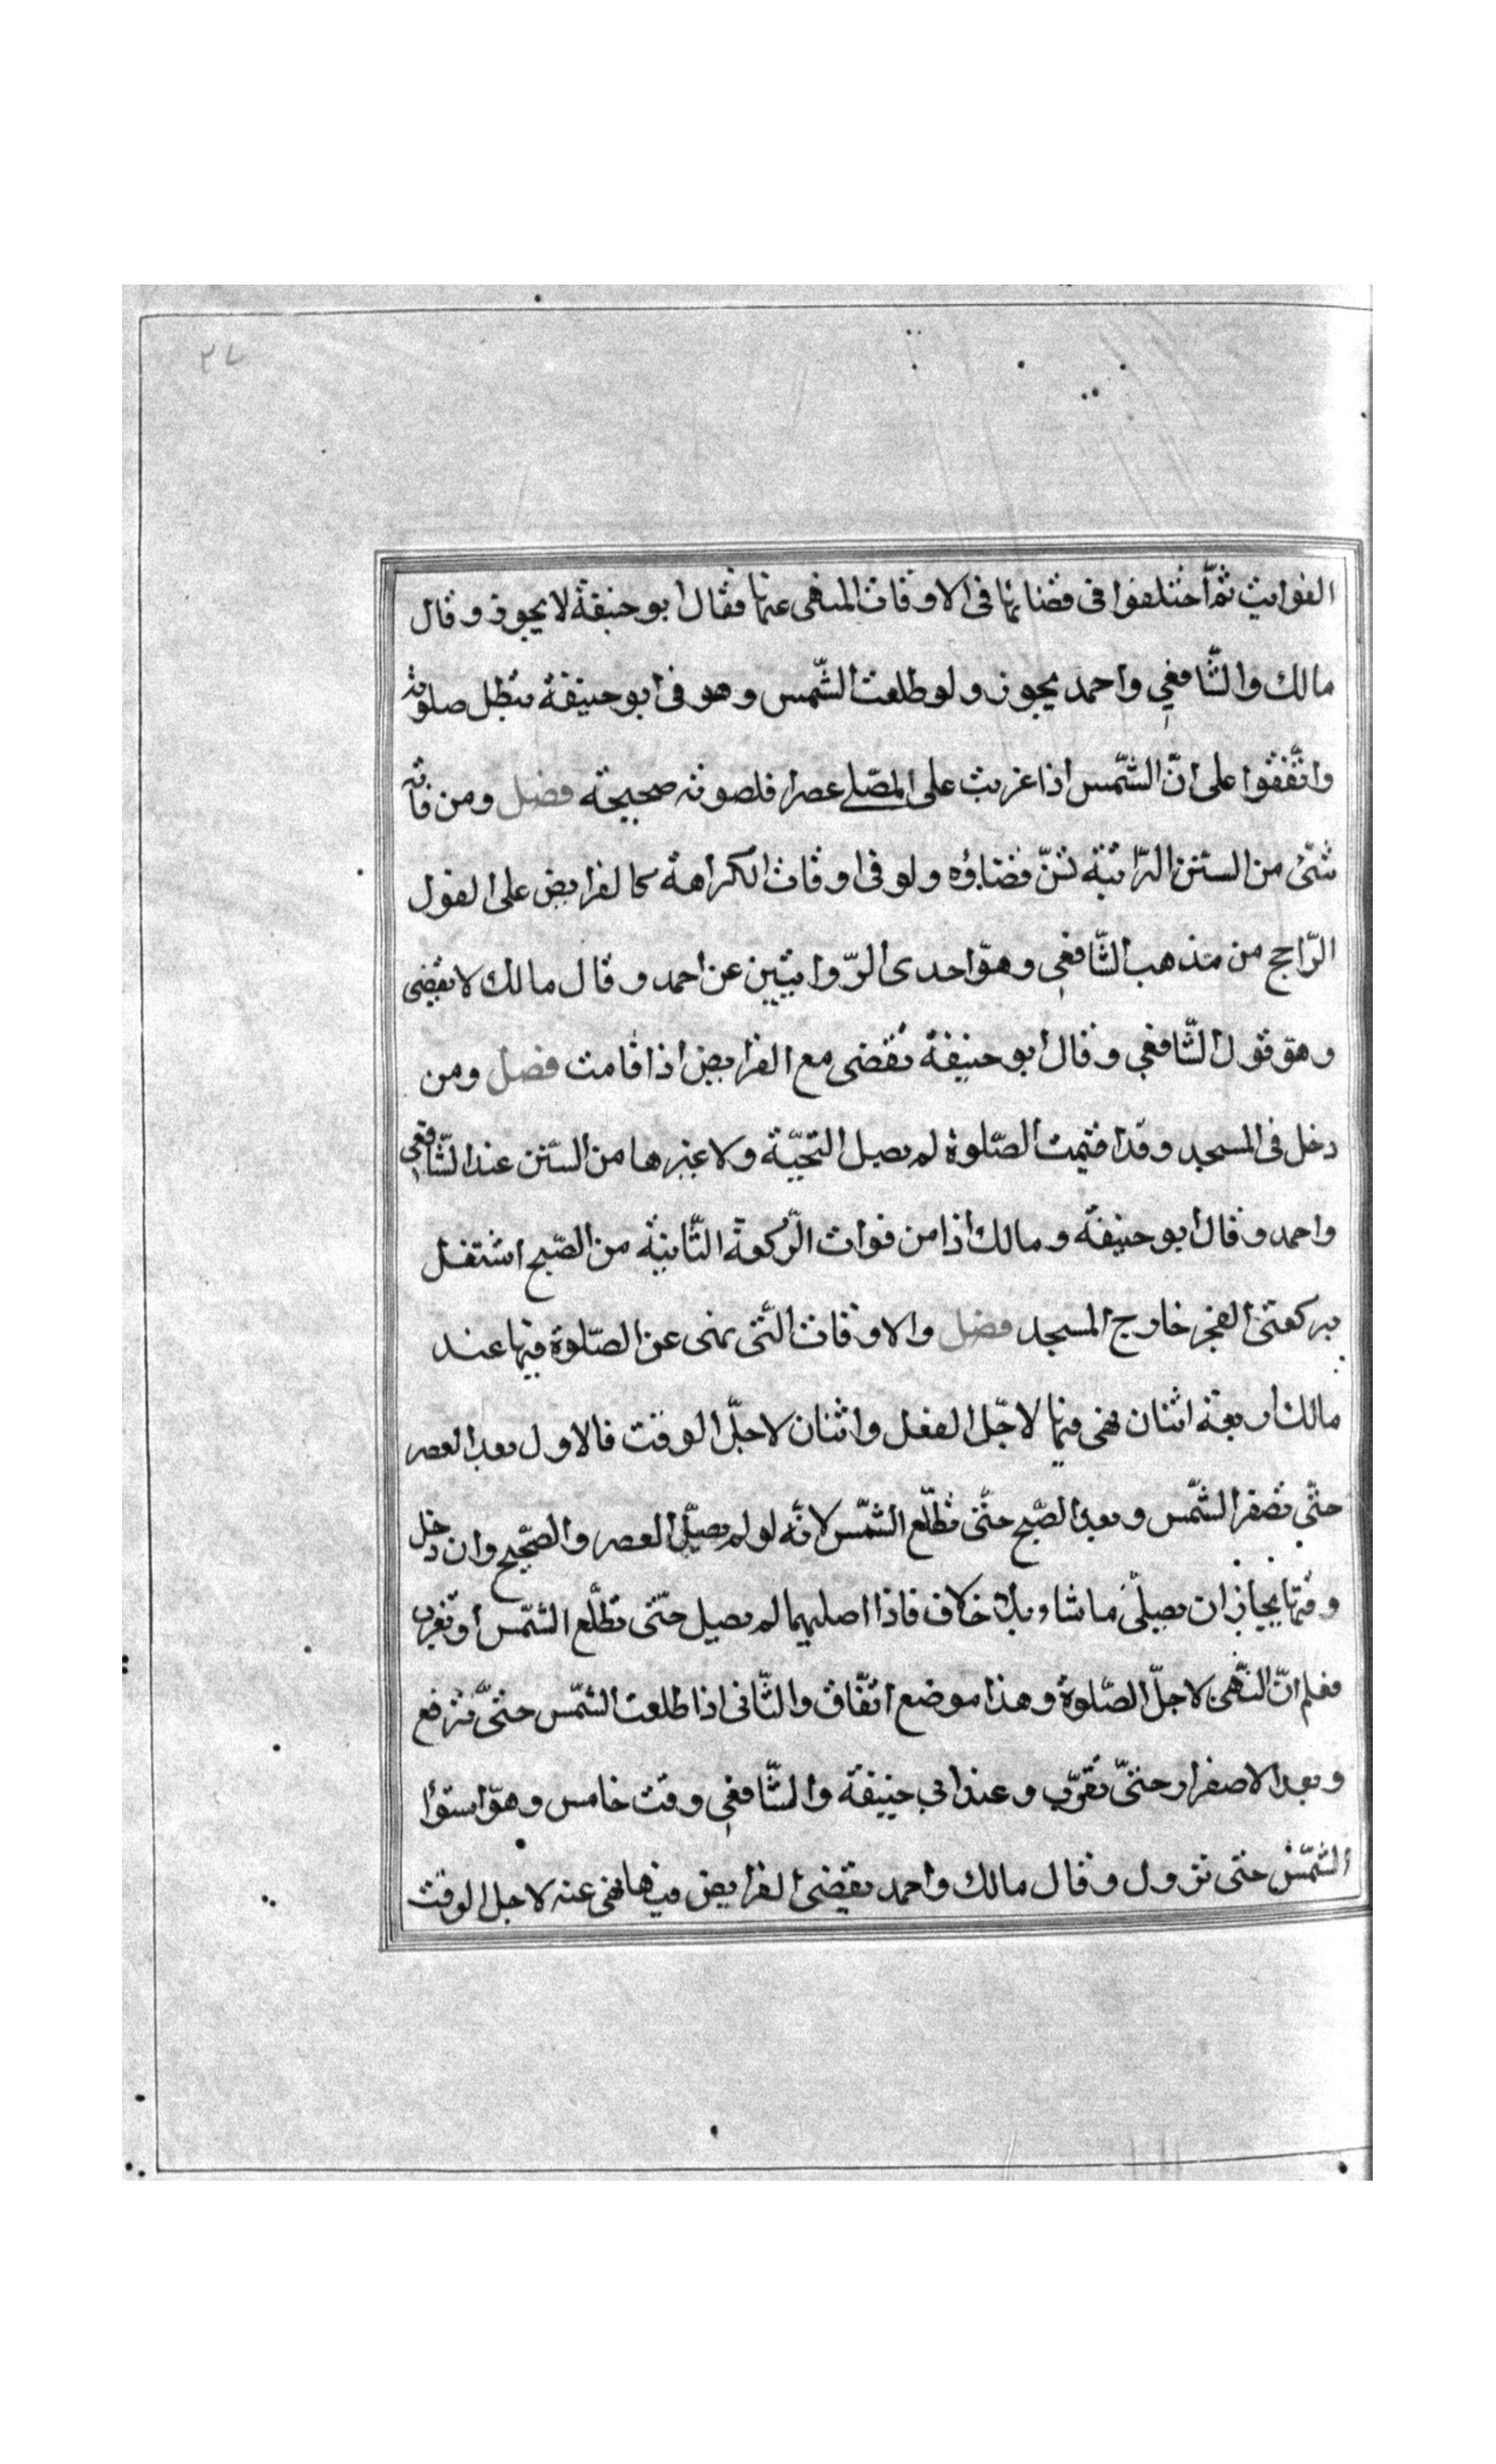 ٢٧
الفوايت ثمّ اختلفوا فى قضائها فى الاوقات المنهى عنها فقال ابو حنيفة لا يجوز وقال
مالك والشّافعي واحمد يجوز ولو طلعت الشّمس وهو فى ابو حنيفة تبطل صلوته
واتّفقوا على انّ الشّمس اذا غربت على المصّلى عصرا فلصوته صحيحة فصل ومن فاته
شئ من السنن الرّاتبة تسنّ قضاؤه ولو فى اوقات الكراهة كالفرايض على القول
الرّاجح من مذهب الشّافعي وهوّ احدى الرّوايتين عن احمد وقال مالك لا تقضى
وهوّ قول الشّافعي وقال ابو حنيفة تقضى مع الفرايض اذا قامت فصل ومن
دخل فى المسجد وقد اقيمت الصّلوة لم يصل التحيّة ولا غيرها من السّنن عند الشّافعي
واحمد وقال ابو حنيفة ومالك اذا من فوات الرّكعة الثّانية من الصّبح اشتغل
بركعتى الفجر خارج المسجد فصل والاوقات الّتى نهى عن الصّلوة فيها عند
مالك اربعة اثنان نهى فيها لاجّل الفعل واثنان لاجلّ الوقت فالاول بعد العصر
حتّى تصفر الشّمس وبعد الصّبح حتّى تطلّع الشّمس لانّه لو لم يصلّ العصر والصّبح وان دخل
وقتها يجاز ان يصلّى ما شاء بلا خلاف فاذا اصليهما لم يصل حتّى تطلّع الشّمس او تغرب
فعلم انّ النّهى لاجلّ الصّلوة وهذا موضع اتّفاق والثّانى اذا طلعت الشّمس حتّى ترفع
وبعد الاصفرار حتىّ تغرّب وعند ابي حنيفة والشّافعي وقت خامس وهوّ استوا
الشّمس حتى تزول وقال مالك واحمد يقضى الفرايض فيها نهى عنه لاجل الوقت